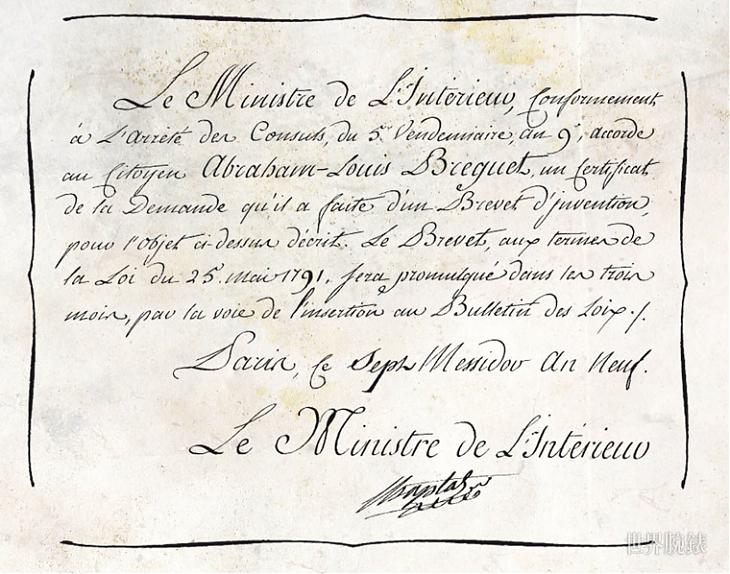 Le Ministre de L'Intérieur, Conformément
à L'Arrêté des Consuls, du 5. Vendémiaire, an 9, accorde
au Citoyen Abraham-Louis Breguet, un Certificat
de la Demande qu'il a faite d'un Brevet d'Invention,
pour l'objet ci-dessus décrit. Le Brevet, aux termes de
la Loi du 25. mai 1791. sera promulgué dans les trois
mois, par la voie de l'insertion au Bulletin des Loix./.
Paris, Ce Sept Messidor An Neuf.
Le Ministre de L'Intérieur
Chaptal
世界腕錶